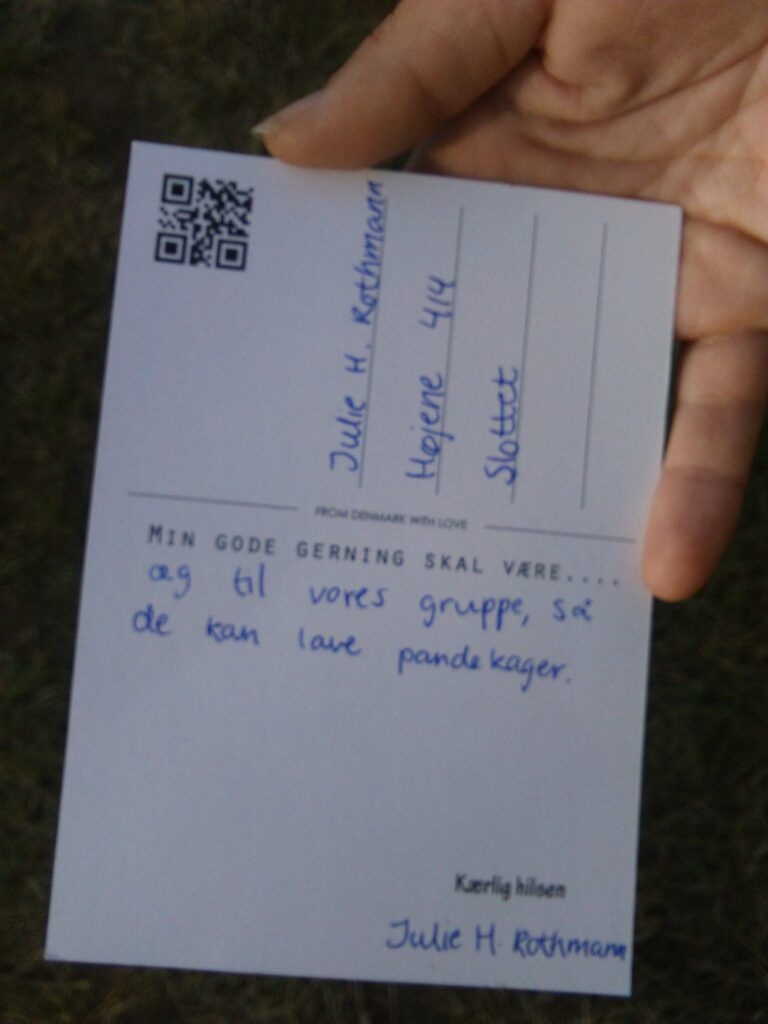 Julie H. Rothmann
Højene 414
Slottet
FROM DENMARK WITH LOVE
MIN GODE GERNING SKAL VÆRE....
æg til vores gruppe, så
de kan lave pandekager.
Kærlig hilsen
Julie H. Rothmann